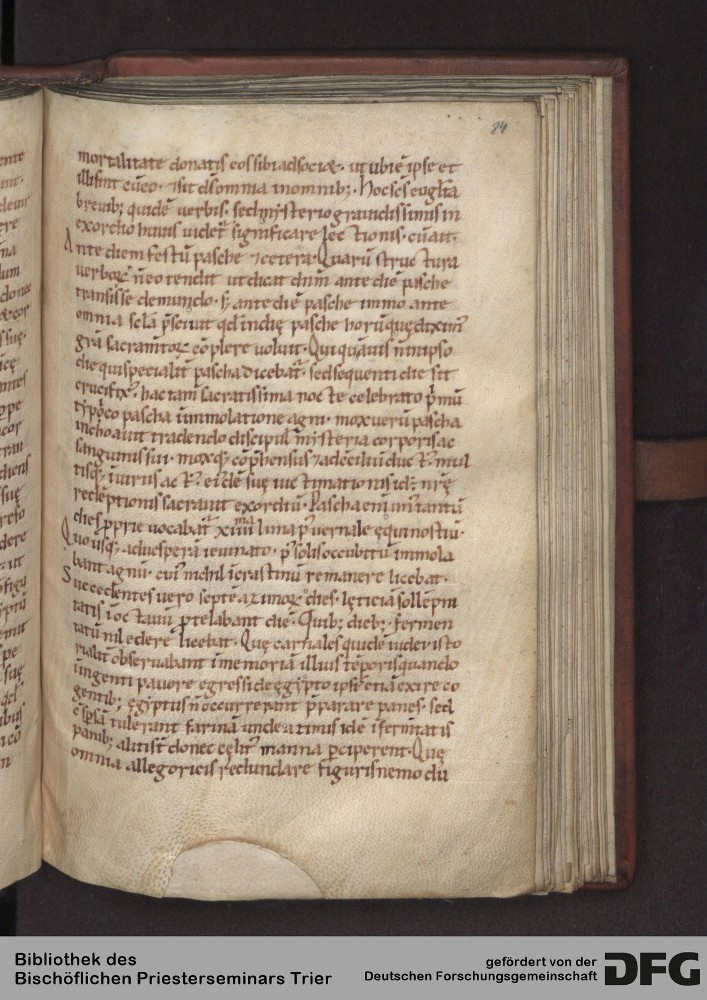 84
mortalitate donatis eos sibi adsociæ. ut ubi ē ipse et
illi sint cū eo. sit ds omnia in omnib;. Hoc scs euglīa
breuib; quidē uerbis. sed mysterio grauidissimus in
exordio huius uidet significare lectionis. cū ait.
Ante diem festū pasche & cetera. Quarū structura
uerboꝝ n̄ eo tendit ut dicat dnm ante diē pasche
transisse de mundo. s; ante diē pasche immo ante
omnia scla p̄sciuit qd in die pasche horū quę diximꝰ
grā sacramtoꝝ cōplere uoluit. Qui quāuis n̄ in ipso
die qui specialit pascha dicebat. sed sequenti die sit
crucifixꝰ. hac tam sacratissima nocte celebrato p̄mū
typico pascha īmmolatione agni. mox uerū pascha
inchoauit tradendo discipul mysteria corporis ac
sanguinis sui. moxq; cōp̄hensus
tisq; iniuriis
redēptionis sacrauit exordiū. Pascha enī un tantū
dies pprie uocabat xiiii luna p̄ uernale ęquinoctiū.
Quo usq; ad uesperā ieiunato. p̄ solis occubitū immola
bant agnū. cui nichil ī crastinū remanere licebat.
Succedentes uero septē azimoꝝ dies. lęticia sollēpni
tatis ī octauū ptelabant diē. Quib; dieb; fermen
tatū nil edere licebat. Quę carnales quidē iudei isto
rialit obseruabant ī memoriā illius tēporis quando
ingenti pauore egressi de ęgypto ipsis etiā exire co
gentib; ęgyptiis n̄ occurrerant p̄parare panes. sed
cōspsā tulerant farinā unde azimis idē ī fermtatis
panib; aliti st donec cęlitꝰ manna pciperent. Quę
omnia allegoricis redundare figuris nemo du
Bibliothek des
Bischöflichen Priesterseminars Trier
gefördert von der
Deutschen Forschungsgemeinschaft
DFG